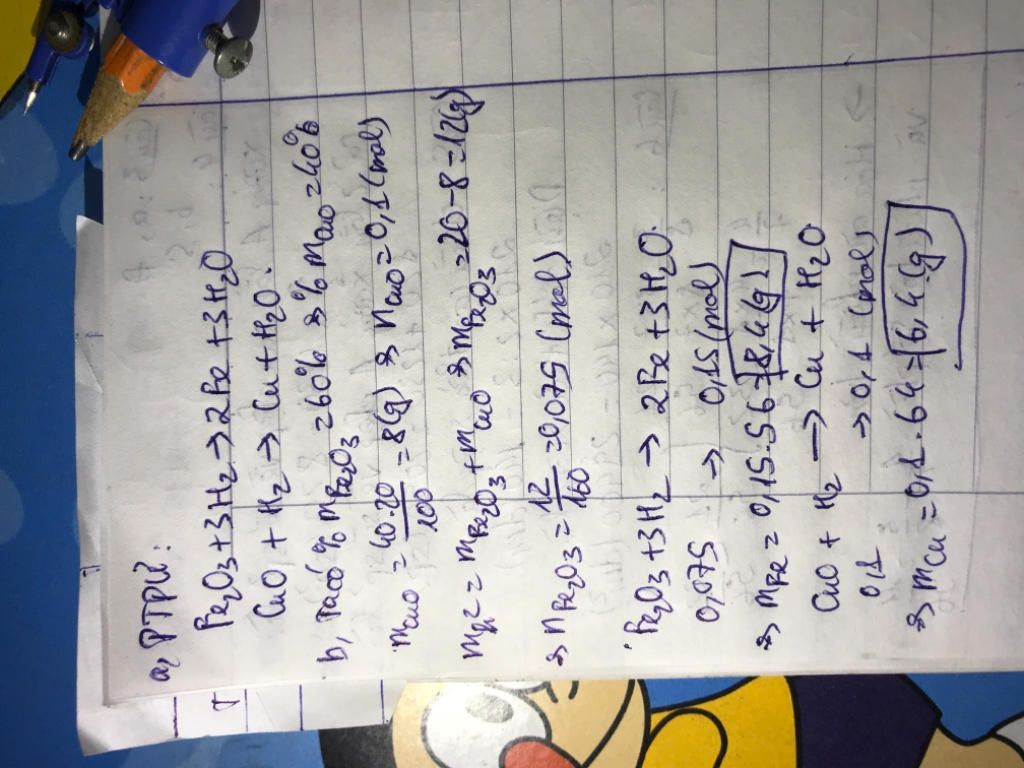 a, PTPỨ:
Fe₂O₃ + 3H₂ → 2Fe + 3H₂O
CuO + H₂ → Cu + H₂O.
b, Ta có % mFe₂O₃ = 60% => % mCuO = 40%
mCuO = 40.20/100 = 8(g) => nCuO = 0,1 (mol)
mhh = mFe₂O₃ + mCuO => mFe₂O₃ = 20 - 8 = 12(g)
=> nFe₂O₃ = 12/160 = 0,075 (mol)
Fe₂O₃ + 3H₂ → 2Fe + 3H₂O.
0,075 → 0,15 (mol)
=> mFe = 0,15.56 = 8,4(g)
CuO + H₂ → Cu + H₂O
0,1 → 0,1 (mol)
=> mCu = 0,1.64 = 6,4(g)